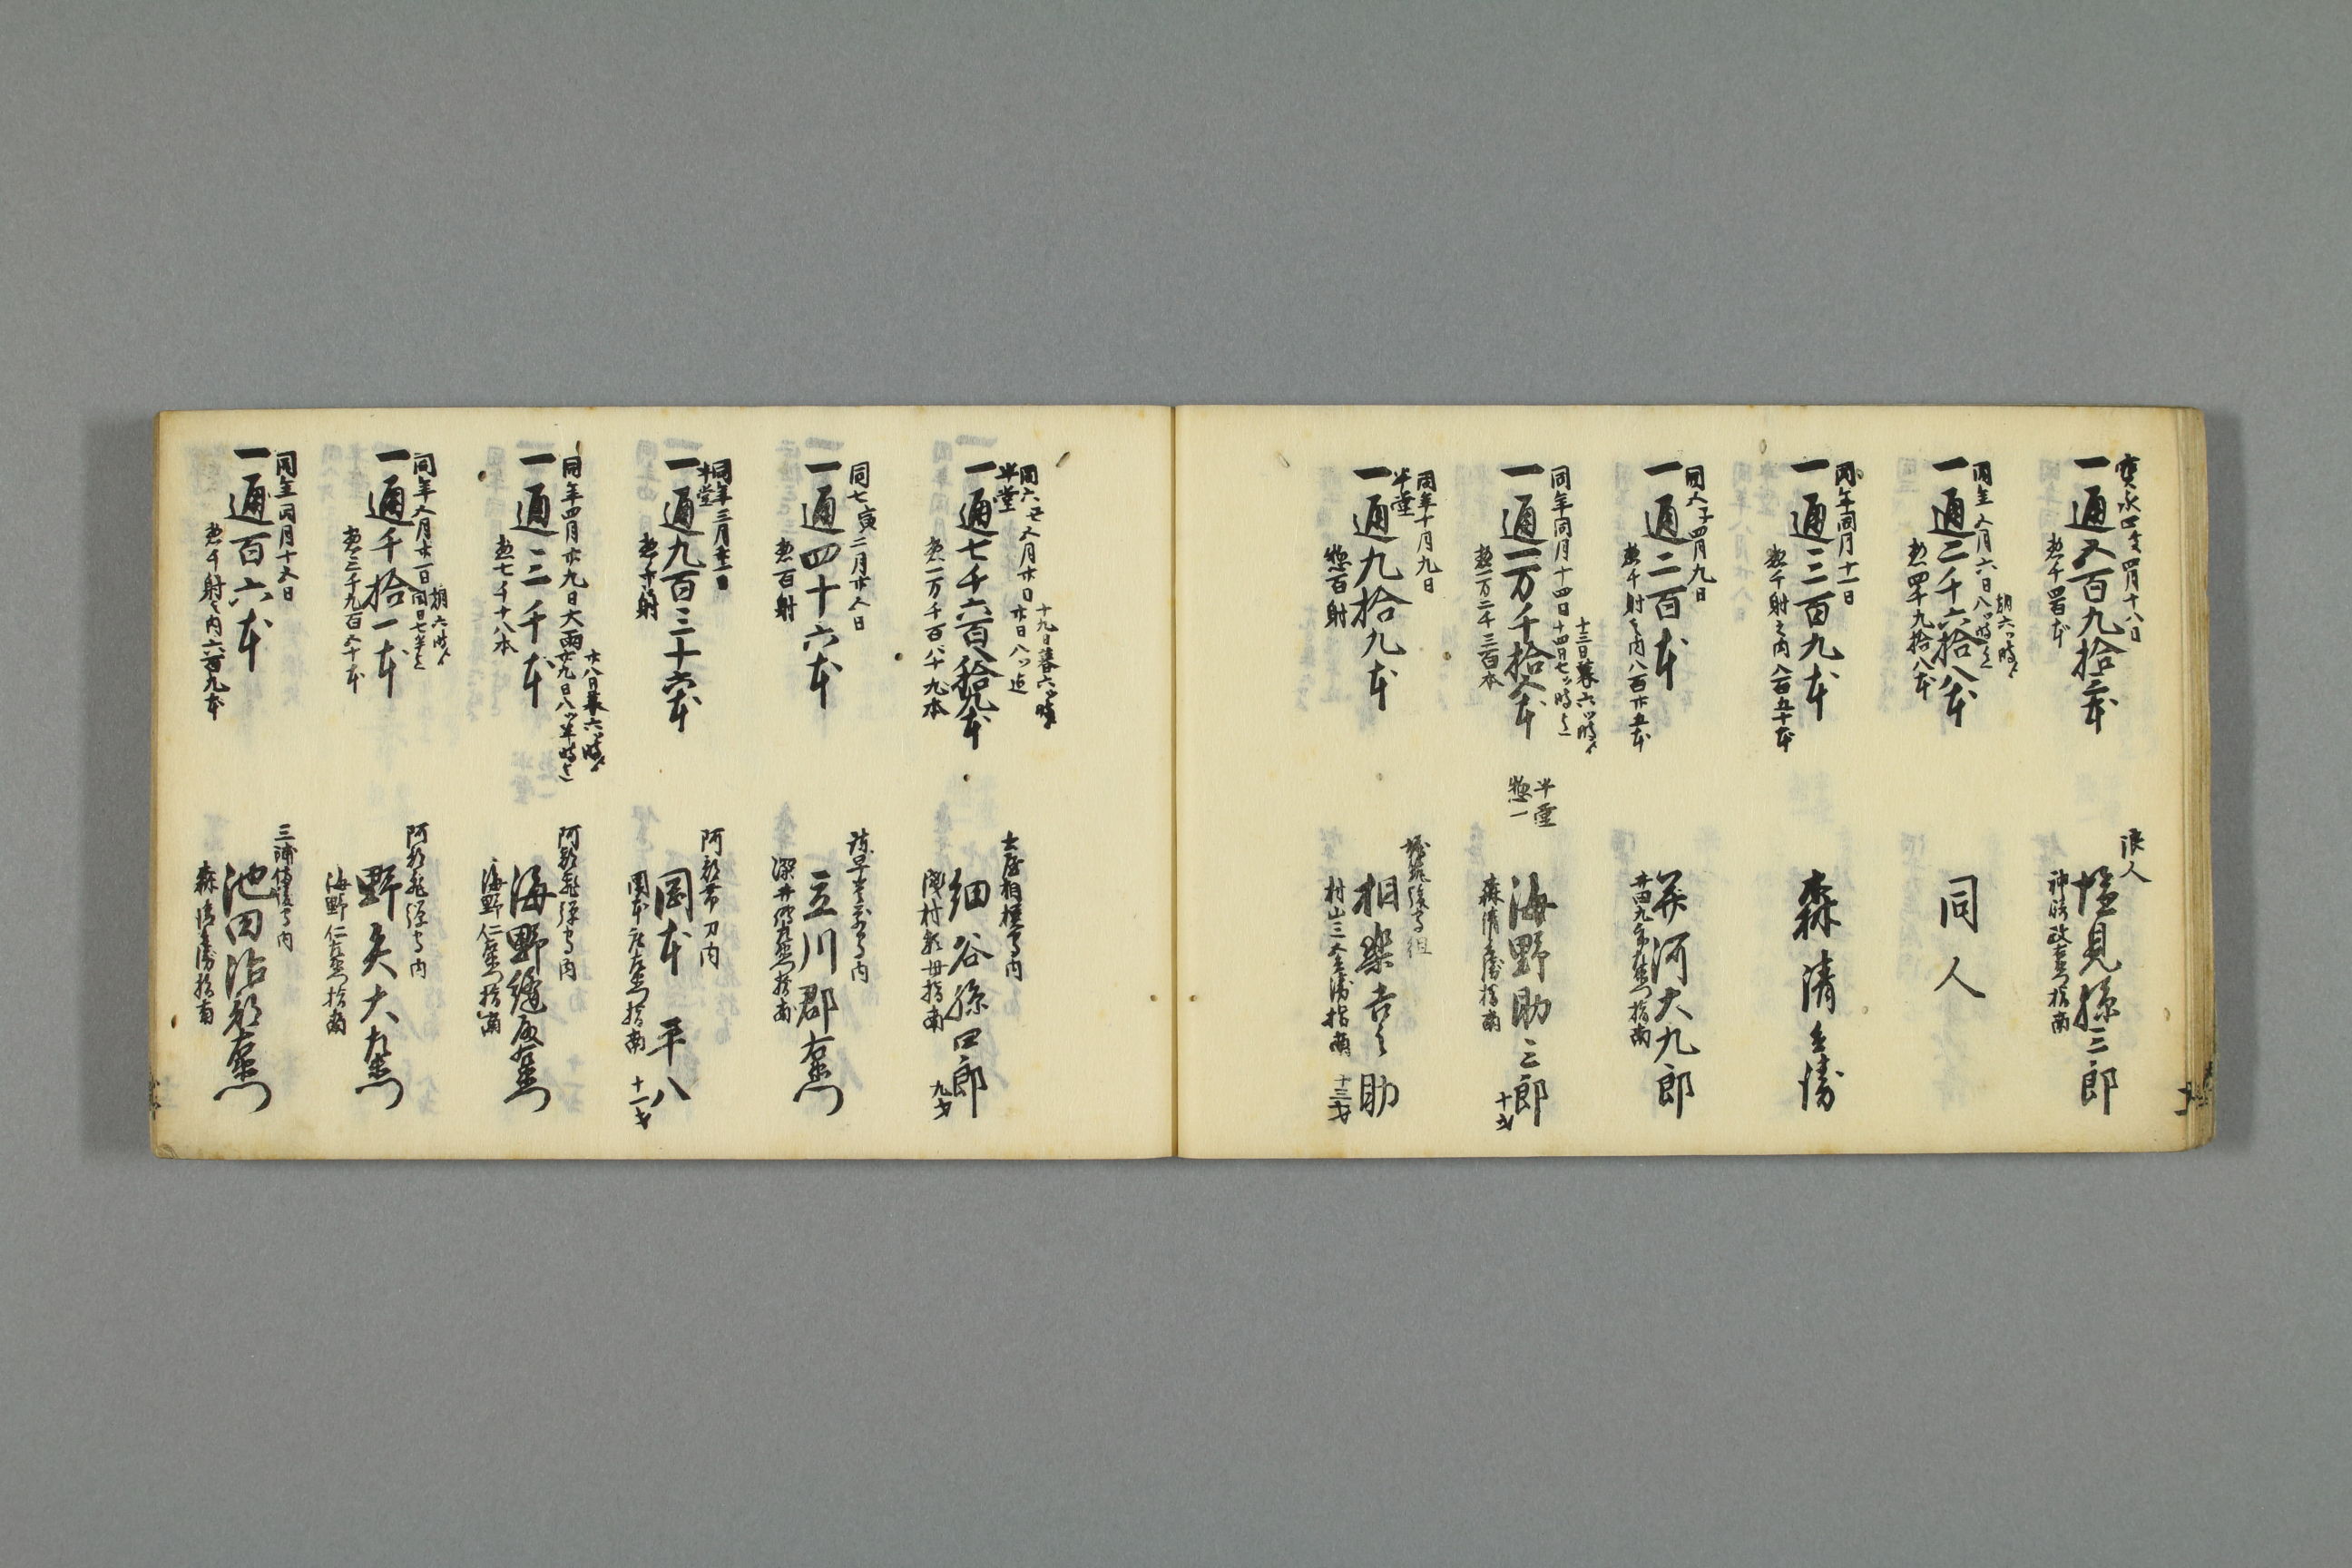 宝永四亥四月十八日
一通五百九拾三本
惣千四百本
浪人
塩見孫三郎
指南
同年五月六日八ツ時迄
朝六ツ時ゟ
一通二千六拾八本
惣四千九拾八本
同人
同年同月十一日
一通三百九本
惣千射之内八百五十本
森清兵衛
同五子四月九日
一通二百本
惣千射之内八百廿五本
並河大九郎
指南
同年同月十四日
十三日暮六ツ時ゟ
十四日七ツ時迄
一通一万千拾五本
惣一万二千三百本
半堂
惣一
海野助三郎
十才
森清兵衛指南
同年十月九日
半堂
一通九拾九本
惣百射
堀筑後守組
相楽吉之助
村山三太兵衛指南
十三才
同六丑五月廿日
十九日暮六ツ時ゟ
廿日八ツ迄
半堂
一通七千六百八拾九本
惣一万千百八十九本
土屋相模守内
細谷孫四郎
磯村新母指南
九才
同七寅二月廿五日
一通四十六本
惣百射
立川郡右衛門
指南
同年三月廿一日
半堂
一通九百三十六本
惣千射
阿部帯刀内
岡本平八
岡本左衛門指南
十一才
同年四月廿九日大雨
廿八日暮六ツ時ゟ
廿九日八ツ半時迄
一通三千本
惣七千十八本
阿部飛騨守内
海野縫殿右衛門
海野仁左衛門指南
同年五月廿一日
朝六時ゟ
同日七半迄
一通千拾一本
惣三千九百五十本
阿部飛騨守内
野矢大左衛門
海野仁左衛門指南
同年同月十五日
一通百六本
惣千射之内六百九本
三浦備後守内
池田治郎右衛門
森清兵衛指南